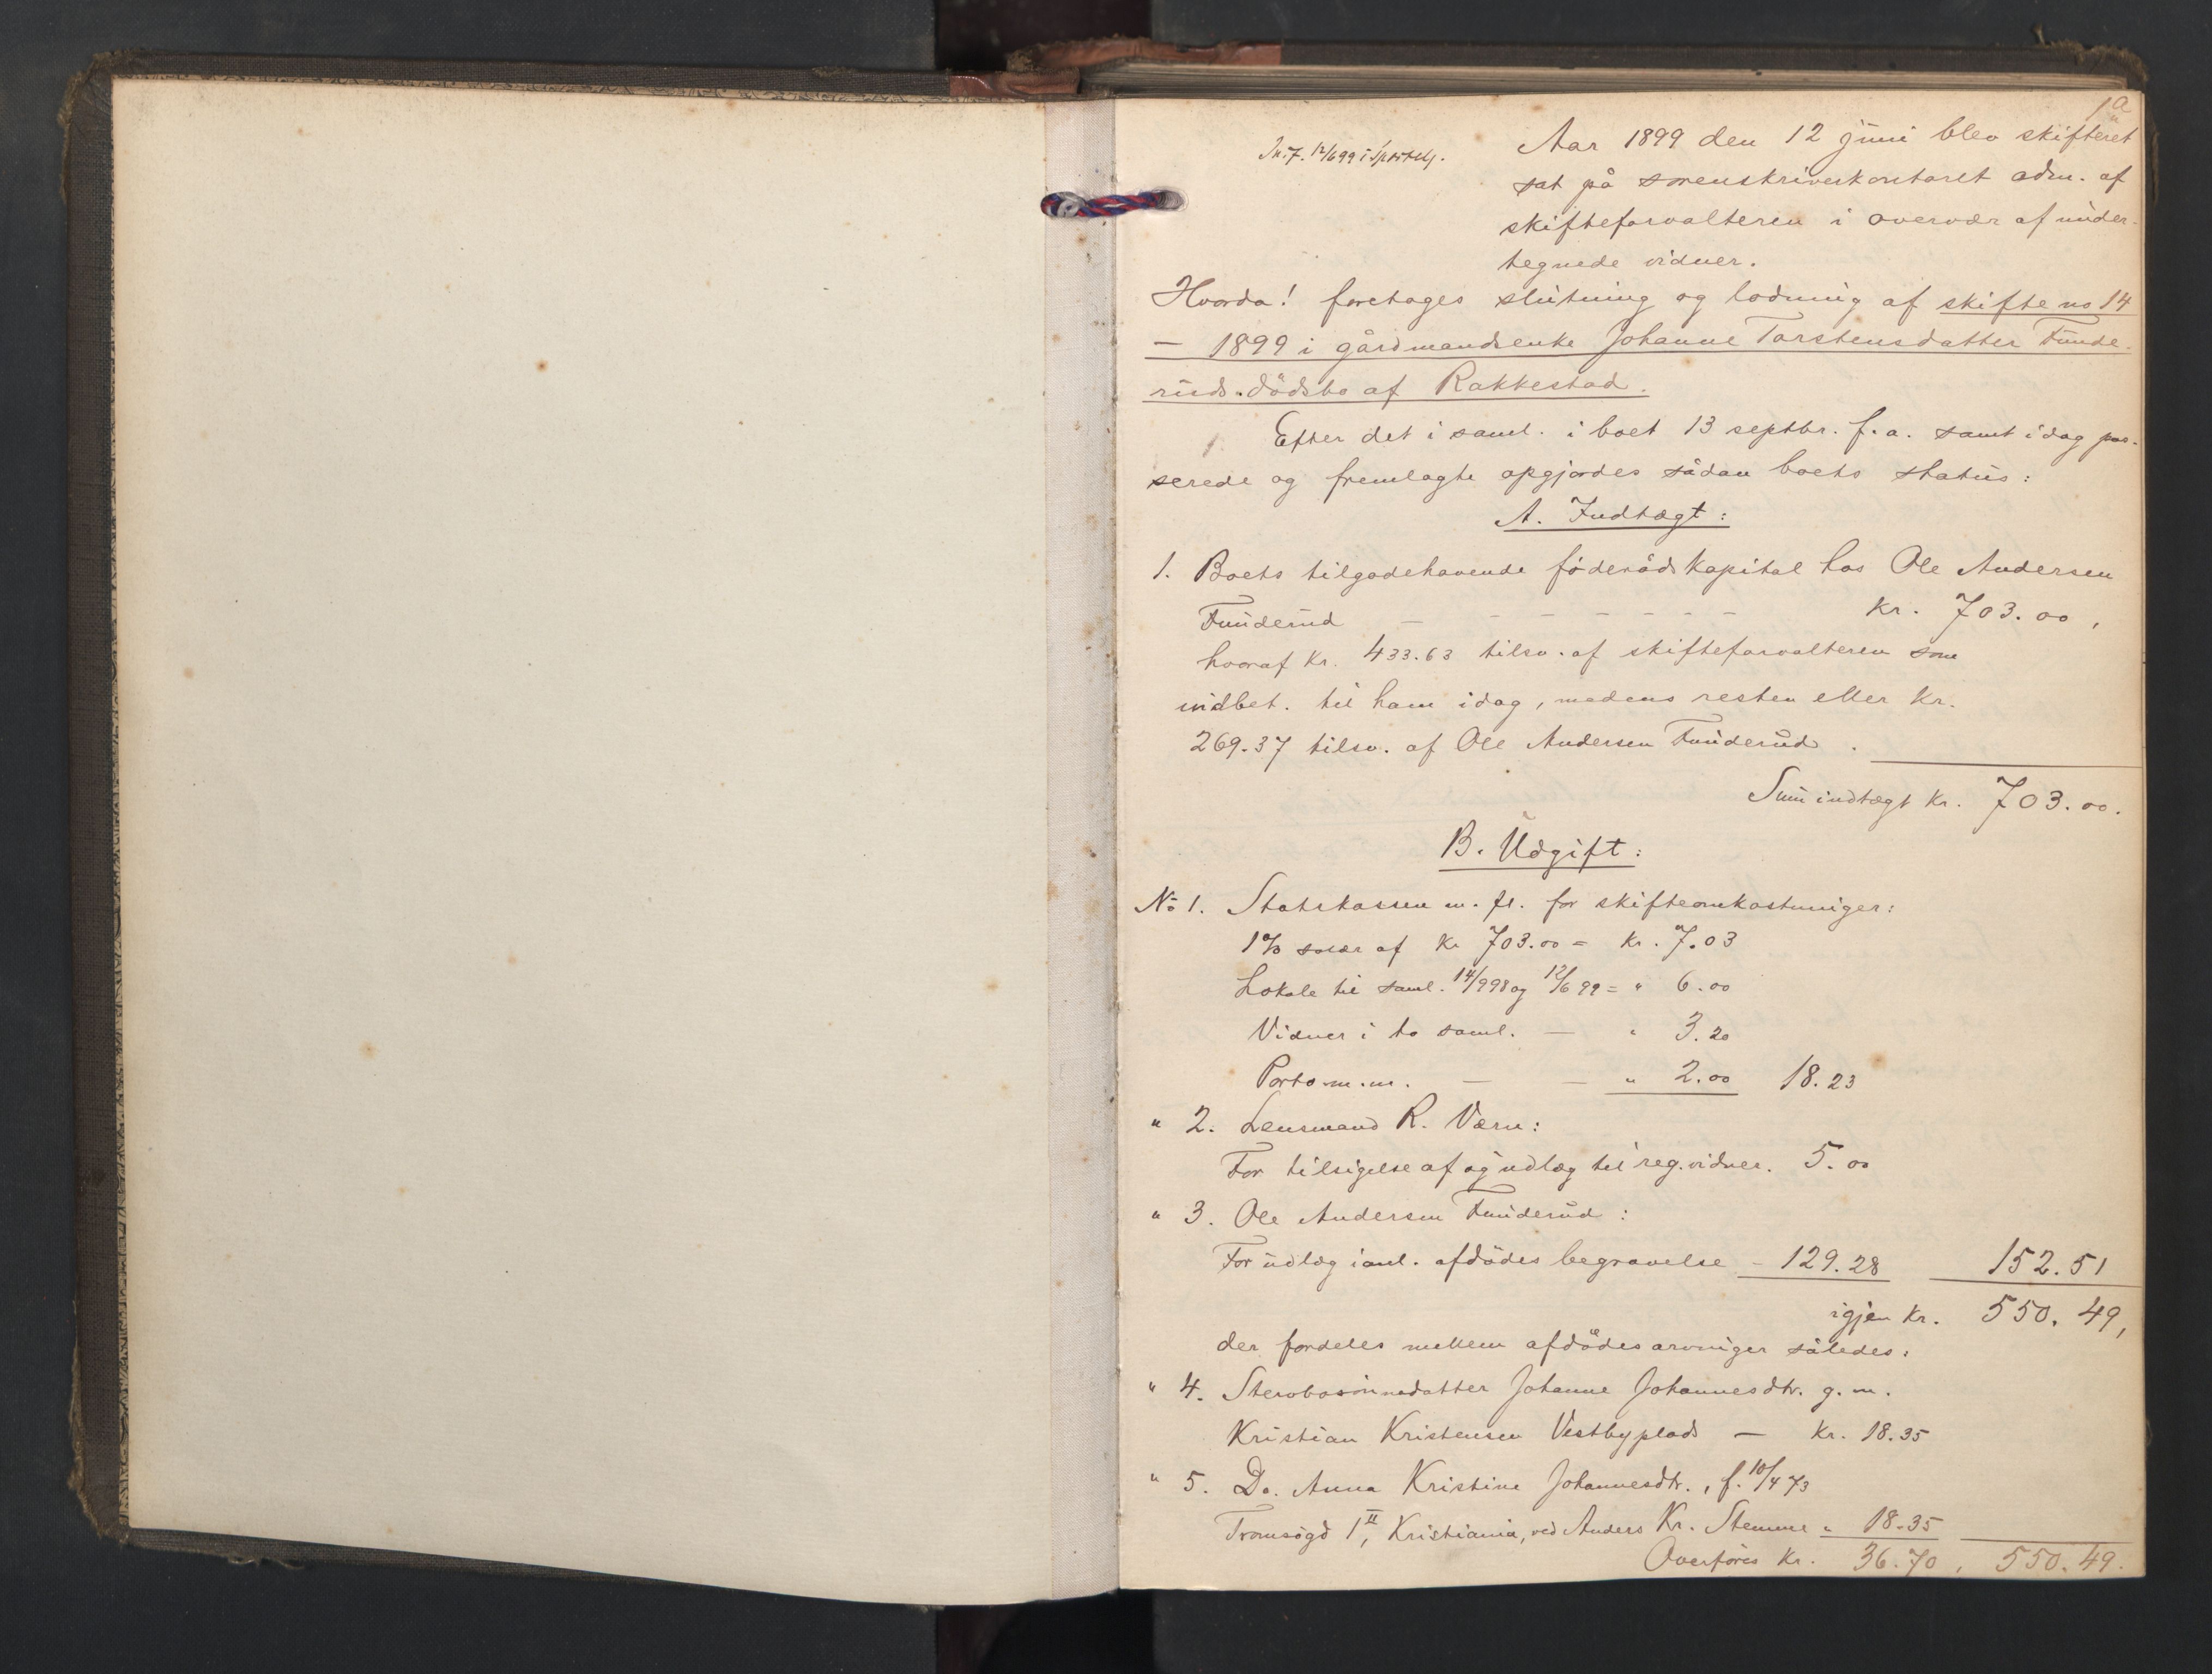 1a
Inf. 12/6 99 i Sportelj.
Aar 1899 den 12 juni blev skifteret
sat på sorenskriverkontoret adm. af
skifteforvalteren i overvær af under-
tegnede vidner.
Hvorda! foretages slutning og lodning af skifte no 14
— 1899 i gårdmandsenke Johanne Torstensdatter Funde-
ruds dödsbo af Rakkestad.
Efter det i saml. i boet 13 septbr. f. a. samt idag pas-
serede og fremlagte opgjordes sådan boets status:
A. Indtægt:
1. Boets tilgodehavende föderådskapital hos Ole Andersen
Funderud — — — — — — — kr. 703.00,
hvoraf kr. 433.63 tilsv. af skifteforvalteren som
indbet. til ham idag, medens resten eller kr.
269.37 tilsv. af Ole Andersen Funderud.
Sum indtægt kr. 703.00.
B. Udgift:
No 1. Statskassen m. fl. for skifteomkostninger:
1% svær af kr 703.00 = kr. 7.03
Lokale til saml. 14/9 98 og 12/6 99 = " 6.00
Vidner i to saml. — " 3.20
Porto m.m. — — " 2.00 18.23
" 2. Lensmand R. Værn:
For tilsigelse af og udlæg til reg. vidner. 5.00
" 3. Ole Andersen Funderud:
For udlæg i anl. afdödes begravelse - 129.28 152.51
igjen kr. 550.49,
der fordeles mellem afdödes arvinger således:
" 4. Stervbosönnedatter Johanne Johannesdtr. g. m.
Kristian Kristensen Vestbyplads — kr. 18.35
" 5. Do. Anna Kristine Johannesdtr., f. 10/4 73
Tromsögd 1 II, Kristiania, ved Anders Kr. Stemme " 18.35
Overföres kr. 36.70, 550.49.